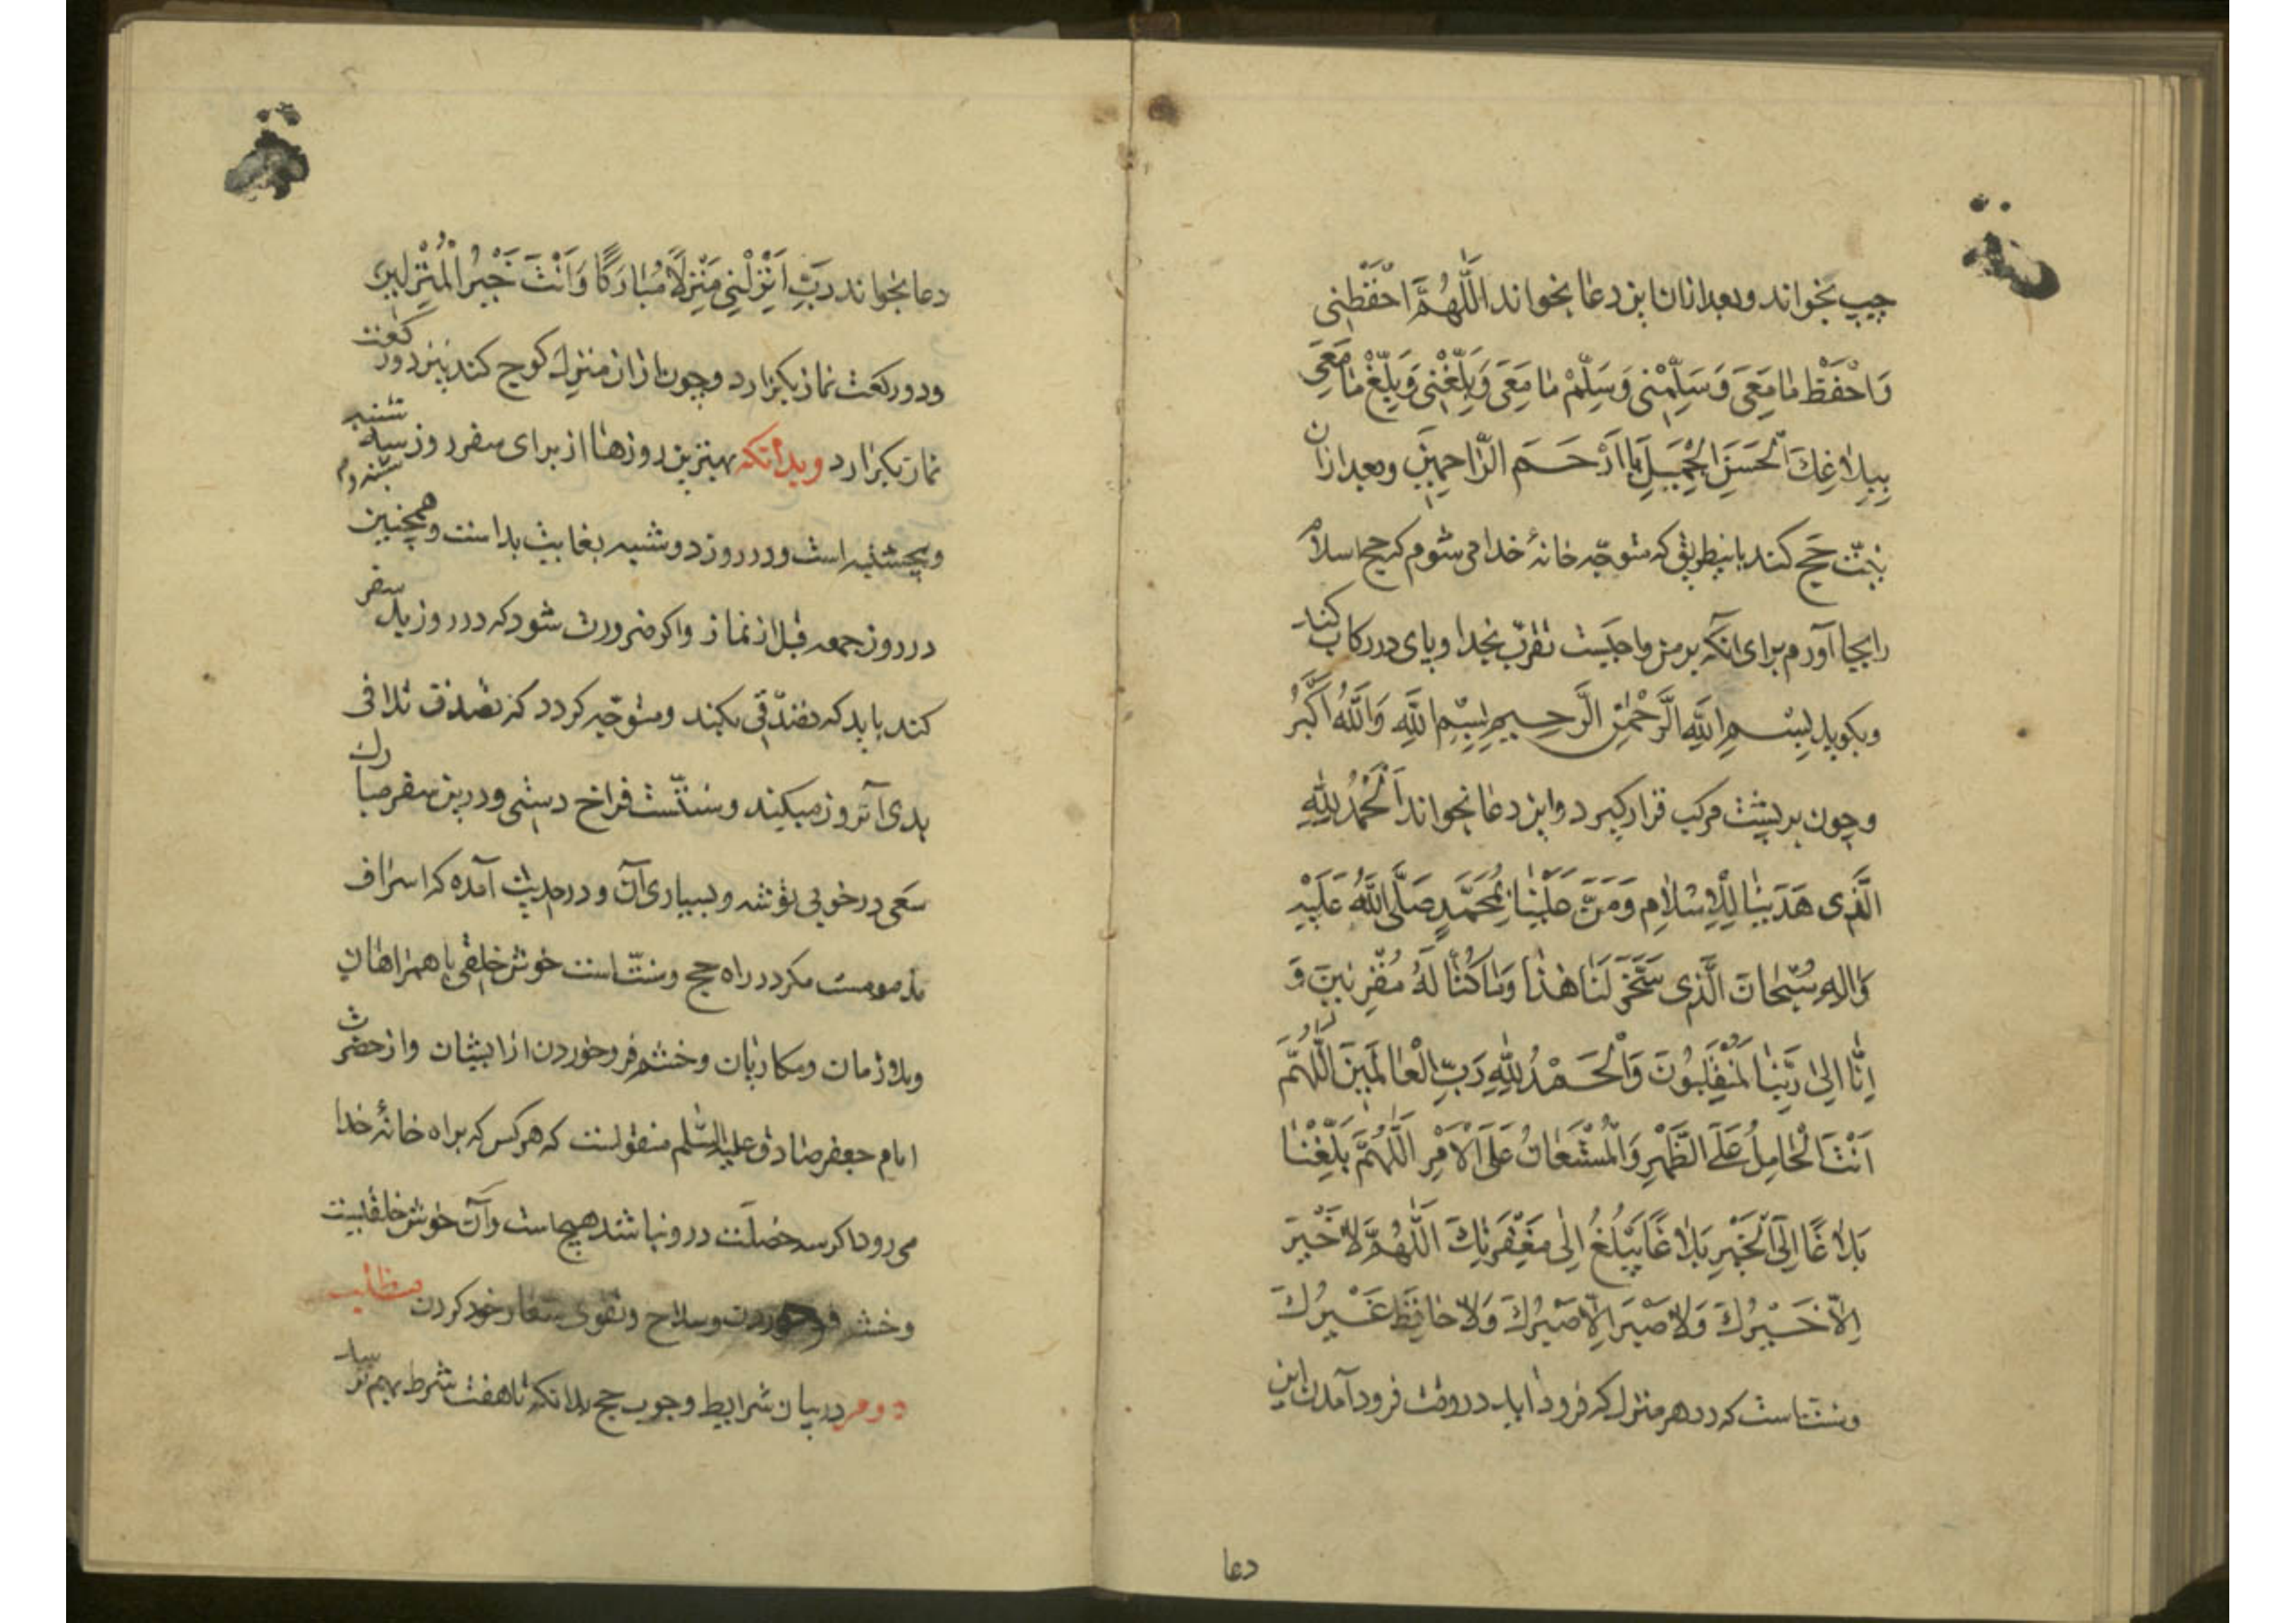 چپ بخواند و بعد از ان این دعا بخواند اَللّٰهُمَّ احْفَظْنی
وَاحْفَظْ مٰا مَعِیَ وَسَلِّمْنی وَسَلِّمْ مٰا مَعِیَ وَبَلِّغْنی وَبَلِّغْ مٰا مَعِیَ
بِبَلاٰغِكَ الْحَسَنِ الْجَمیلِ یٰا اَرْحَمَ الرّٰاحِمینَ و بعد از ان
نیّت حج کند باینطریق که متوجّه خانهٔ خدا می شوم که حج اسلام
را بجا آورم برای آنکه بر من واجبست تقرّب بخدا و پای در رکاب کند
و بکوید بِسْمِ اللّٰهِ الرَّحْمٰنِ الرَّحیمِ بِسْمِ اللّٰهِ وَاللّٰهُ اَکْبَرُ
و چون بر پشت مرکب قرار کیرد و این دعا بخواند اَلْحَمْدُ لِلّٰهِ
الَّذی هَدَینٰا لِلْاِسْلاٰمِ وَمَنَّ عَلَیْنٰا بِمُحَمَّدٍ صَلَّی اللّٰهُ عَلَیْهِ
وَاٰلِهِ سُبْحٰانَ الَّذی سَخَّرَ لَنٰا هٰذٰا وَمٰا کُنّٰا لَهُ مُقْرِنینَ وَ
اِنّٰا اِلیٰ رَبِّنٰا لَمُنْقَلِبُونَ وَالْحَمْدُ لِلّٰهِ رَبِّ الْعٰالَمینَ اَللّٰهُمَّ
اَنْتَ الْحٰامِلُ عَلَی الظَّهْرِ وَالْمُسْتَعٰانُ عَلَی الْاَمْرِ اَللّٰهُمَّ بَلِّغْنٰا
بَلاٰغًا اِلَی الْخَیْرِ بَلاٰغًا یَبْلُغُ اِلٰی مَغْفِرَتِكَ اَللّٰهُمَّ لاٰ خَیْرَ
اِلاّٰ خَیْرُكَ وَلاٰ ضَیْرَ اِلاّٰ ضَیْرُكَ وَلاٰ حٰافِظَ غَیْرُكَ
و سنّتست که در هر منزل که فرود اید در وقت فرود آمدن این
دعا
دعا بخواند رَبِّ اَنْزِلْنی مَنْزِلًا مُبٰارَکًا وَاَنْتَ خَیْرُ الْمُنْزِلینَ
و دو رکعت نماز بکزارد و چون از ان منزل کوچ کند نیز دو رکعت
نماز بکزارد و بدانکه بهترین روزها از برای سفر روز سه شنبه
و پنجشنبه است و در روز دوشنبه بغایت بد است و همچنین
در روز جمعه قبل از نماز و اکر ضرورت شود که در روز بد سفر
کند باید که تصدّقی بکند و متوجّه کردد که تصدّق تلافی
بدی آنروز میکند و سنّتست فراخ دستی و درین سفر مبارك
سعی در خوبی توشه و بسیاری آن و در حدیث آمده که اسراف
مذمومست مکر در راه حج و سنّت است خوش خلقی با همراهان
و ملازمان و مکاریان و خشم فرو خوردن از ایشان و از حضرت
امام جعفر صادق علیه السّلم منقولست که هر کس که براه خانهٔ خدا
می رود اکر سه خصلت درو نباشد هیچ است و آن خوش خلقیست
و خشم فرو خوردن و صلاح و تقوی شعار خود کردن مطلب
دوم در بیان شرایط وجوب حج بدانکه تا هفت شرط بهم نرسد